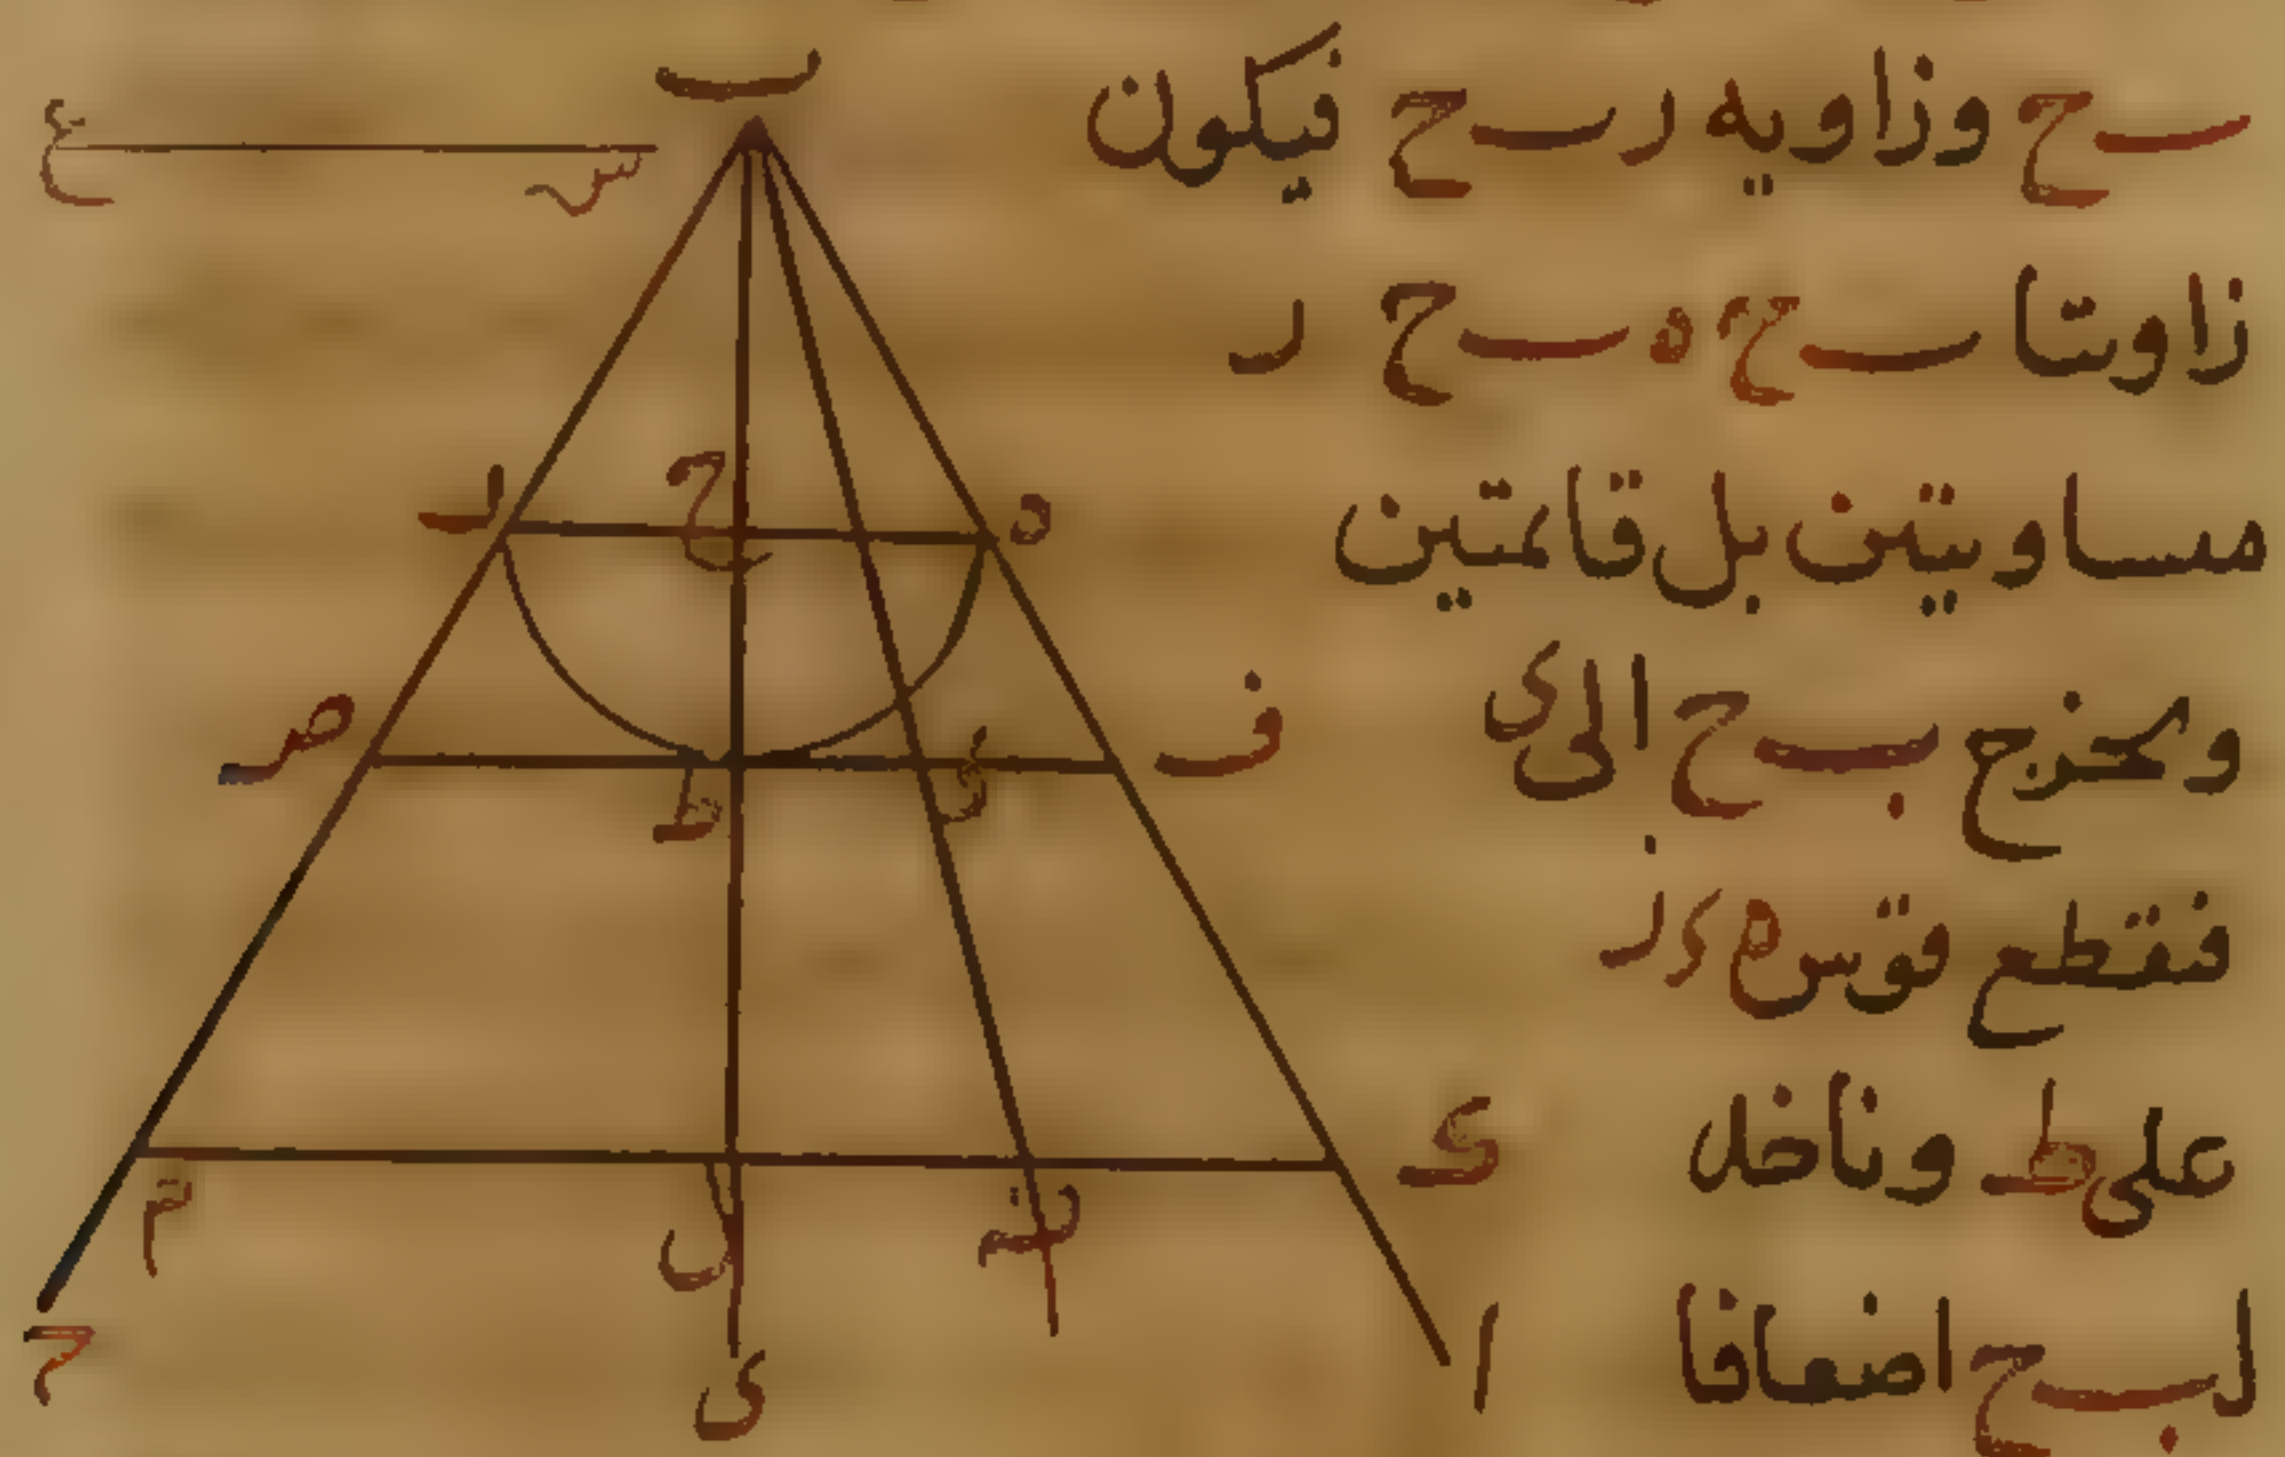 ب ح وزاويه ر ب ح فيكون
زاوتا ب ح ه ب ح ر
مساويتين بل قائمتين
ونخرج ب ح الى
فقطع قوس ه ر
على ط وناخذ
ل ب ح اضعافا
ب
ع
ر
ح
ه
ص
ط
ف
م
ل
ك
ح
ى
ا